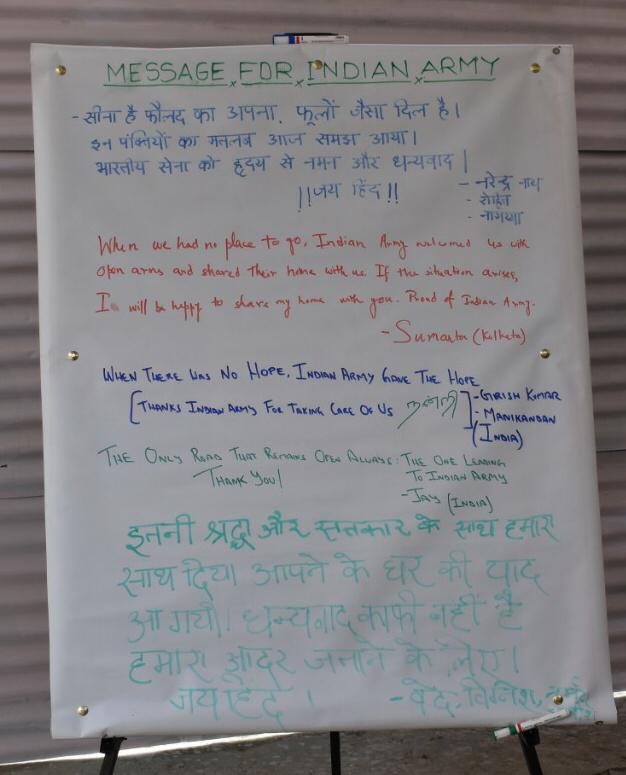 MESSAGE FOR INDIAN ARMY
- सीना है फौलद का अपना, फूलों जैसा दिल है।
इन पंक्तियों का मतलब आज समझ आया।
भारतीय सेना को हृदय से नमन और धन्यवाद।
!! जय हिंद !!
- नरेन्द्र नाथ
- रोहित
-
When we had no place to go, Indian Army welcomed us with
open arms and shared their home with us. If the situation arises,
I will be happy to share my home with you. Proud of Indian Army.
- Sumanta (Kolkata)
WHEN THERE WAS NO HOPE, INDIAN ARMY GAVE THE HOPE
[THANKS INDIAN ARMY FOR TAKING CARE OF US நன்றி] - GIRISH KUMAR
- MANIKANDAN
(INDIA)
THE ONLY ROAD THAT REMAINS OPEN ALWAYS: THE ONE LEADING
TO INDIAN ARMY
THANK YOU!
- JAY (INDIA)
इतनी श्रद्धा और सत्तकार के साथ हमारा
साथ दिया आपने के घर की याद
आ गयी। धन्यवाद काफी नहीं है
हमारा आदर जताने के लिए।
जय हिंद।
- वेद,